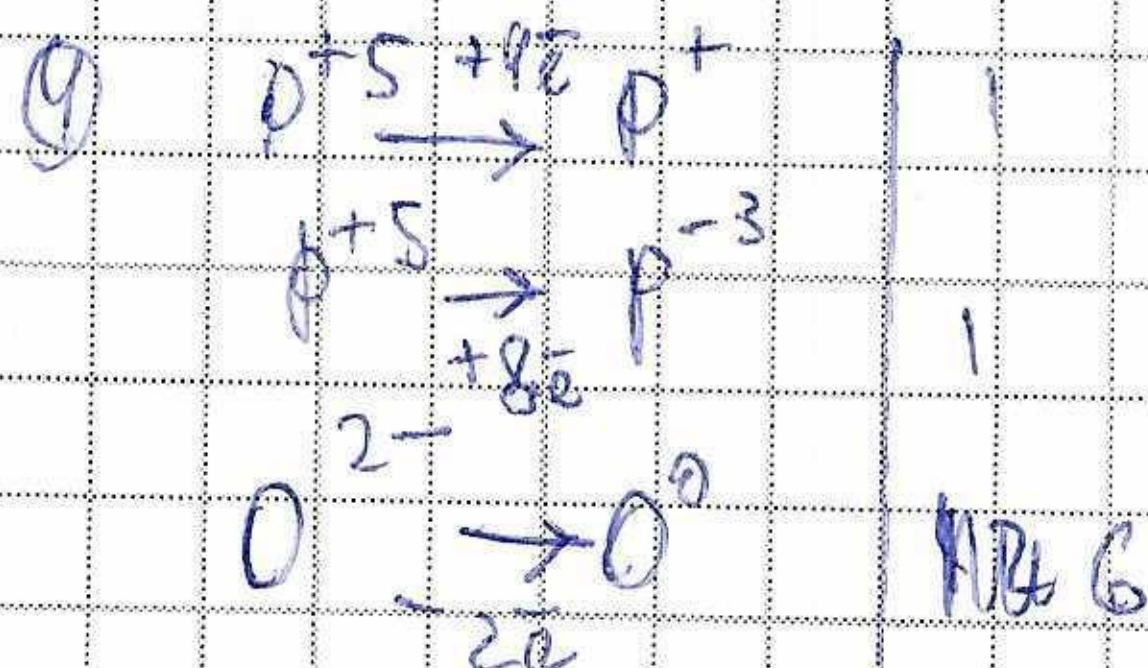 9 P⁺⁵ +4ē → P⁺ | 1
P⁺⁵ → +8ē P⁻³ | 1
O²⁻ → −2ē O⁰ | 6